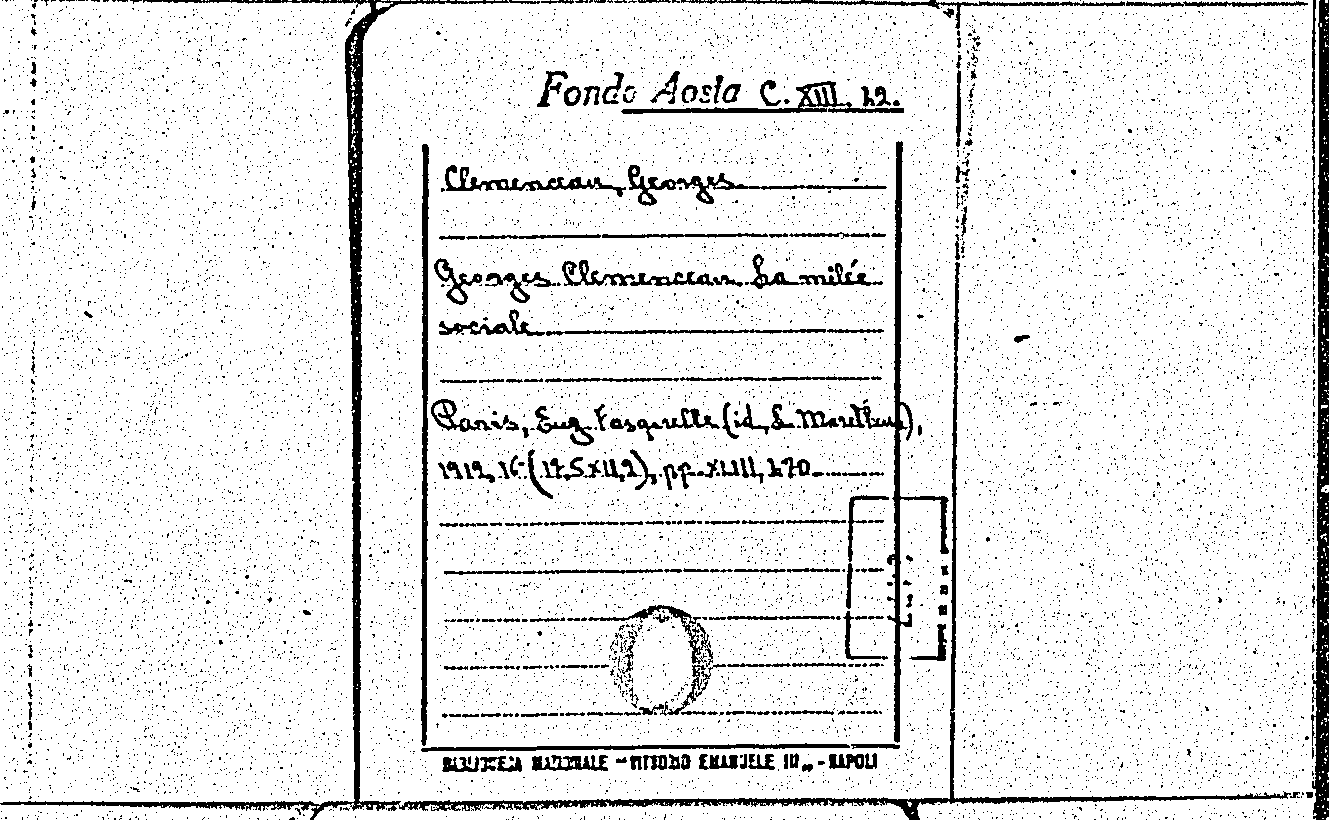 Fondo Aosta C. XIII. 12.
Clemenceau, Georges
Georges Clemenceau. La mêlée
sociale
Paris, Eug. Fasquelle (id, L. Maretheux),
1912, 16° pp. XLIII, 470
BIBLIOTECA NAZIONALE "VITTORIO EMANUELE III" - NAPOLI